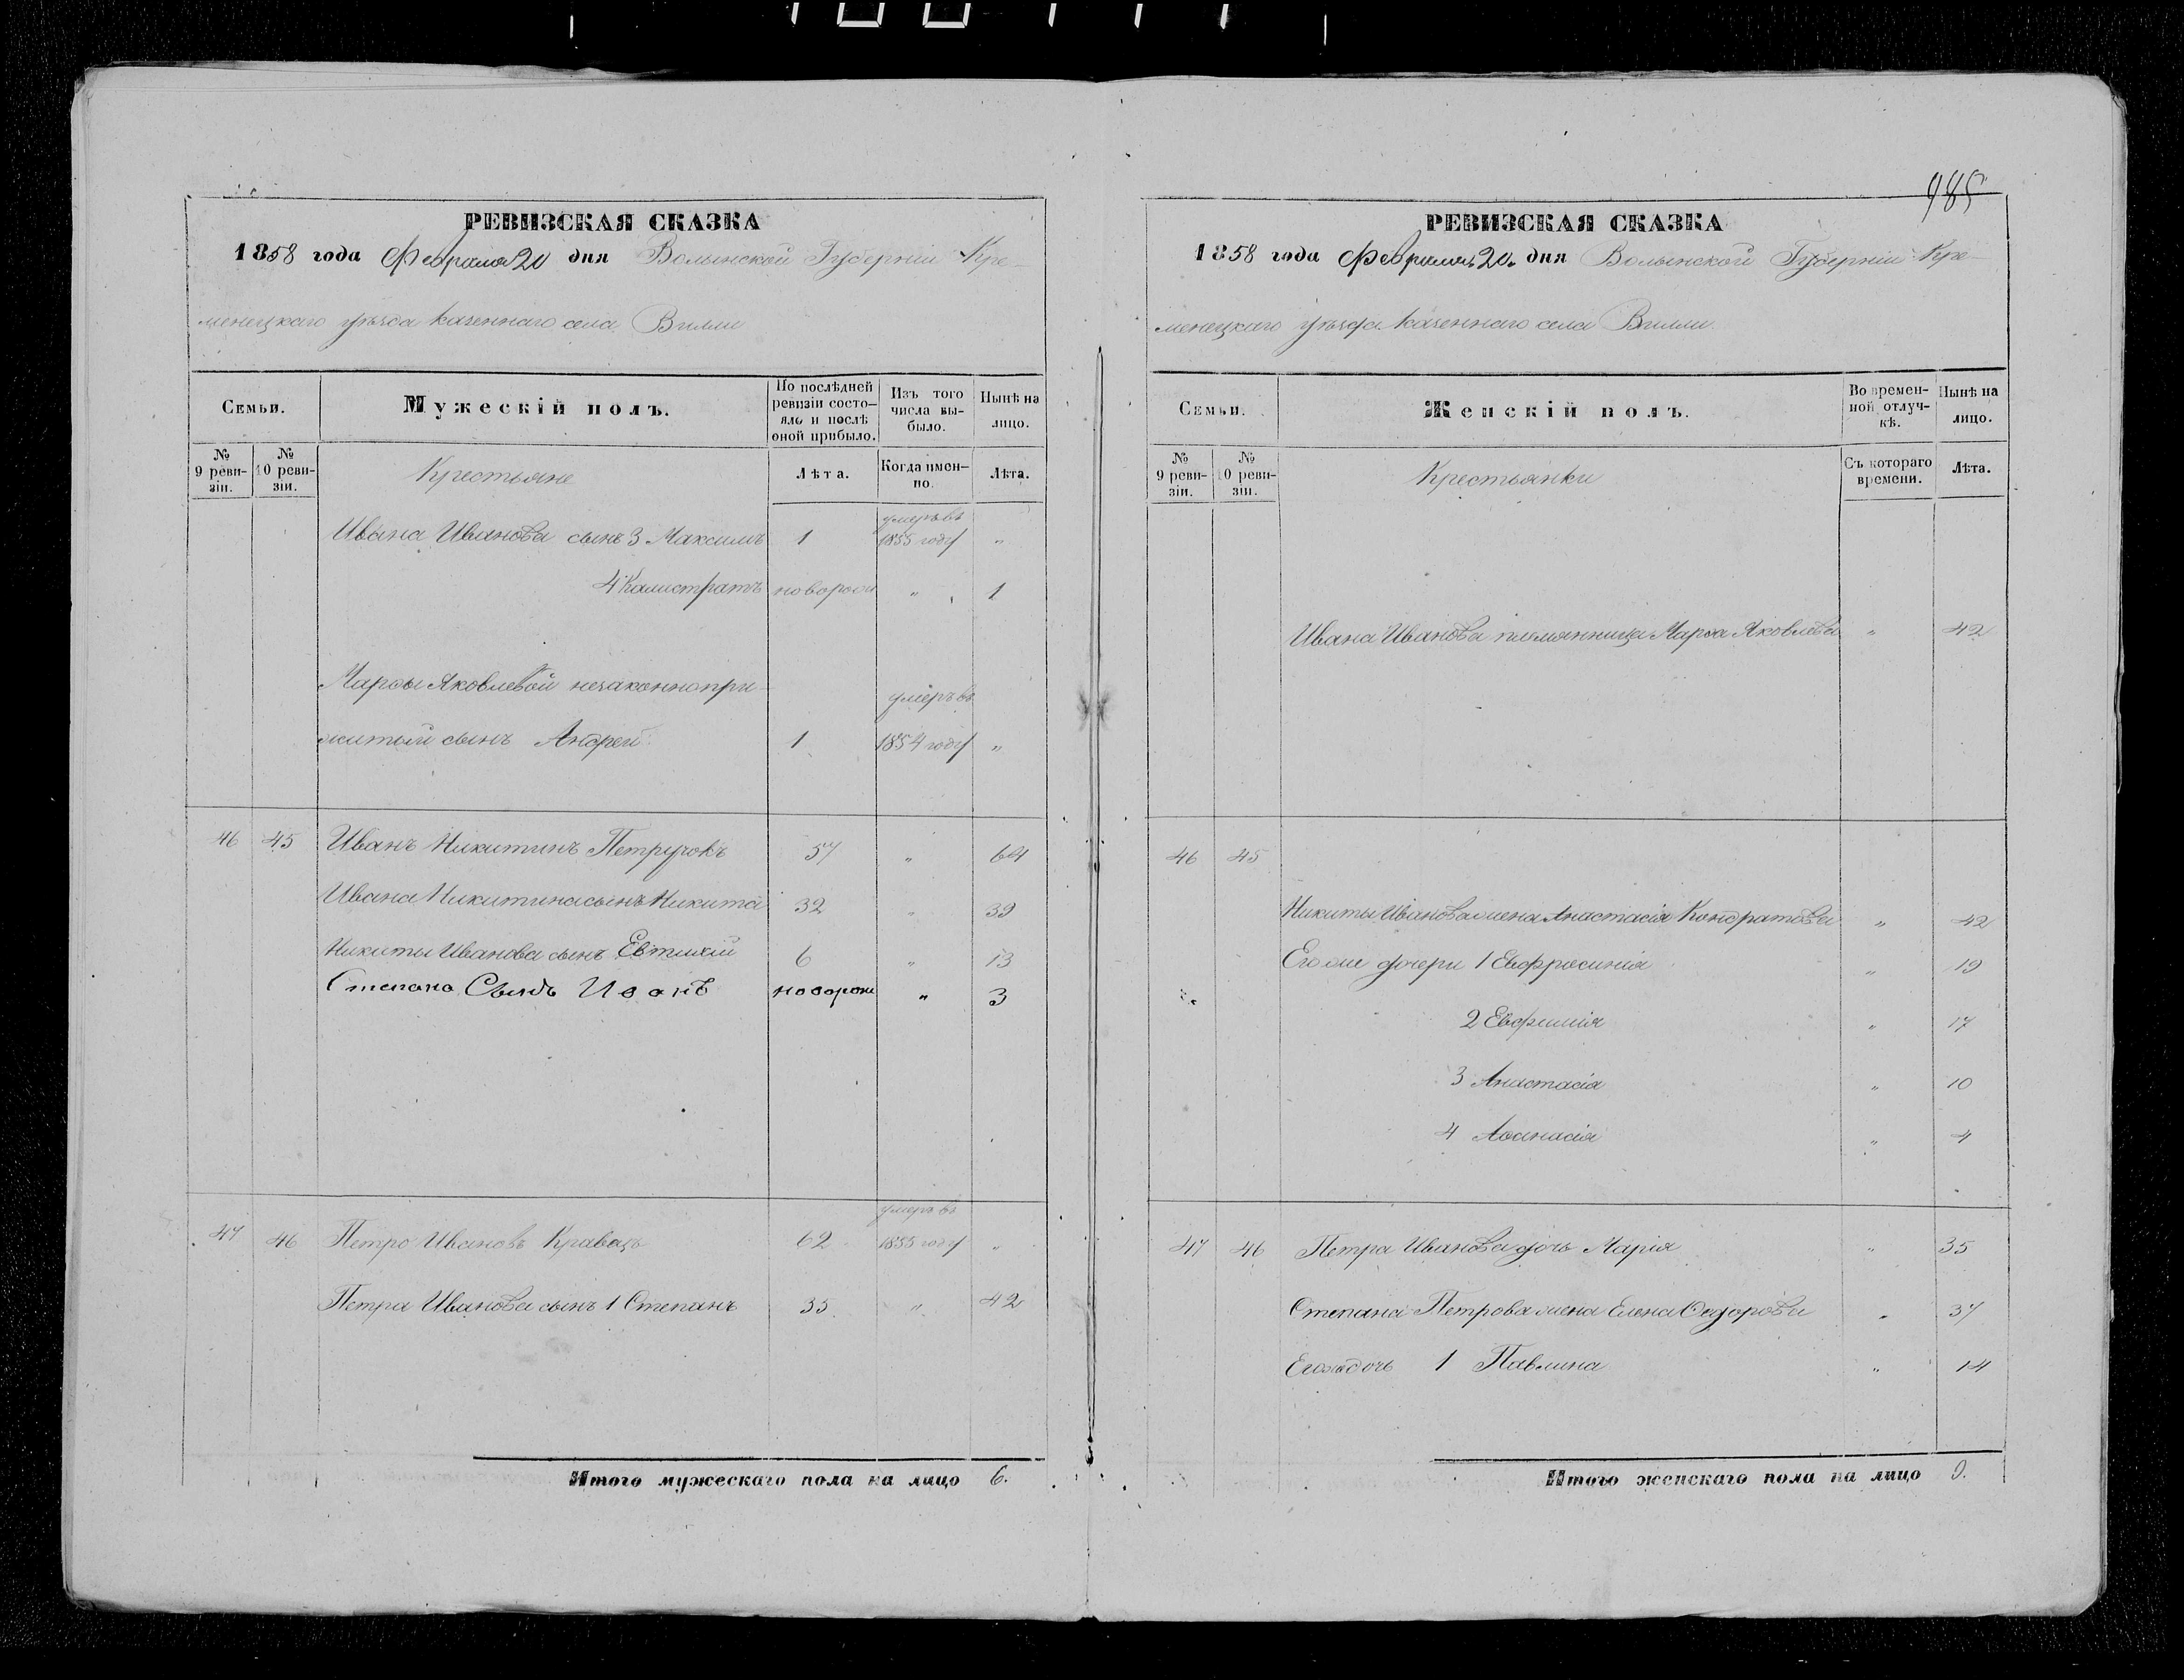 985
РЕВИЗСКАЯ СКАЗКА
1858 года Февраля 20 дня Волынской Губерніи Кре-
менецкаго уѣзда казеннаго села Вилли
Семьи.
Мужескій полъ.
По послѣдней ревизіи состо-
яло и послѣ
оной прибыло.
Изъ того
числа вы-
было.
Нынѣ на
лицо.
№
9 реви-
зіи.
№
10 реви-
зіи.
Крестьяне
Лѣта.
Когда имен-
но.
Лѣта.
умеръ въ
Ивана Иванова сынъ 3 Максимъ 1 1855 году "
4 Калистратъ новорож " 1
Марѳы Яковлевой незаконнопри-
умеръ въ
житый сынъ Андрей 1 1854 году "
46 45 Иванъ Никитинъ Петручокъ 57 " 64
Ивана Никитина сынъ Никита 32 " 39
Никиты Иванова сынъ Евтихій 6 " 13
Степана Сынъ Иванъ новорож " 3
умеръ въ
47 46 Петро Ивановъ Кравецъ 62 1855 году "
Петра Иванова сынъ 1 Степанъ 35 " 42
Итого мужескаго пола на лицо 6.
РЕВИЗСКАЯ СКАЗКА
1858 года Февраля 20 дня Волынской Губерніи Кре-
менецкаго уѣзда казеннаго села Вилли
Семьи.
Женскій полъ.
Во времен-
ной отлуч-
кѣ.
Нынѣ на
лицо.
№
9 реви-
зіи.
№
10 реви-
зіи.
Крестьянки
Съ котораго
времени.
Лѣта.
Ивана Иванова племянница Марѳа Яковлева " 42
46 45
Никиты Иванова жена Анастасія Кондратова " 42
Его же дочери 1 Евфросинія " 19
2 Евфимія " 17
3 Анастасія " 10
4 Аѳанасія " 4
47 46 Петра Иванова дочь Марія " 35
Степана Петрова жена Елена Ѳедорова " 37
Егоже дочь 1 Павлина " 14
Итого женскаго пола на лицо 9.